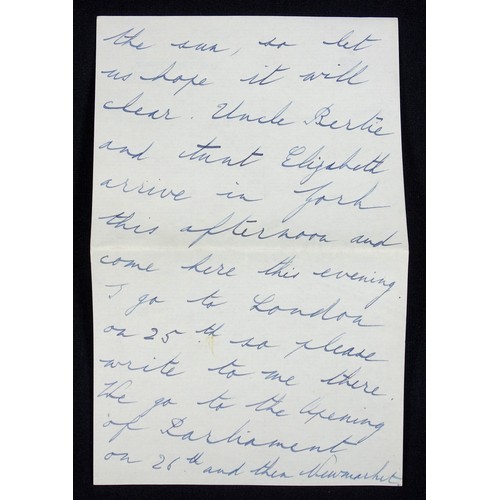 the sun, so let
us hope it will
clear. Uncle Bertie
and Aunt Elizabeth
arrive in York
this afternoon and
come here this evening.
I go to London
on 25th so please
write to me there.
We go to the Opening
of Parliament
on 26th and then Newmarket.